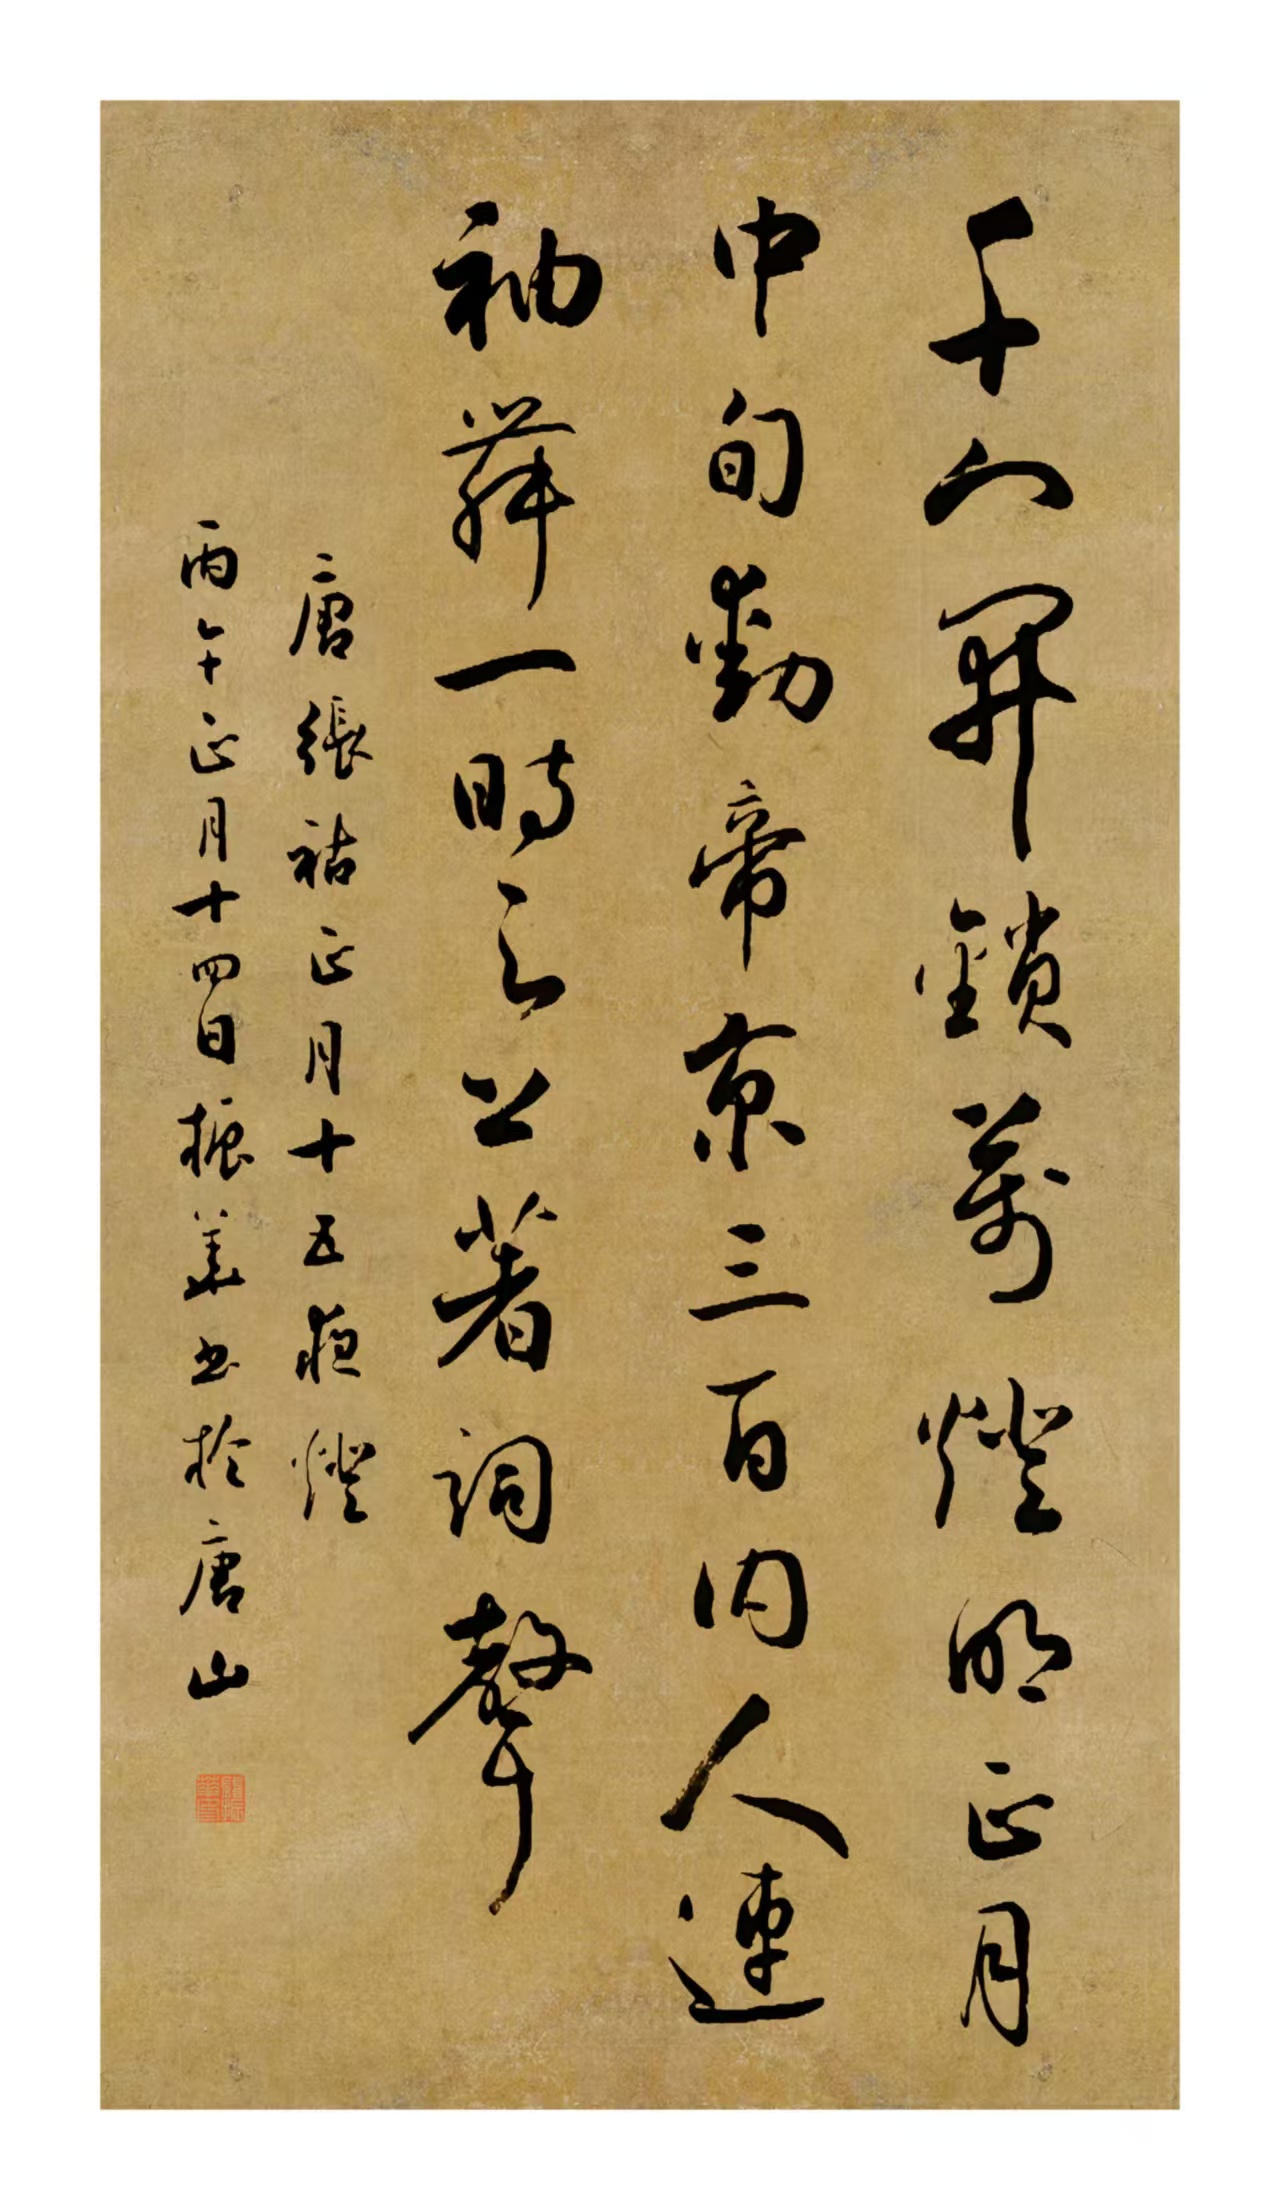 千門開鎖萬燈明正月
中旬動帝京三百内人連
袖舞一時天上著詞聲
唐張祜正月十五夜燈
丙午正月十四日振華書於唐山